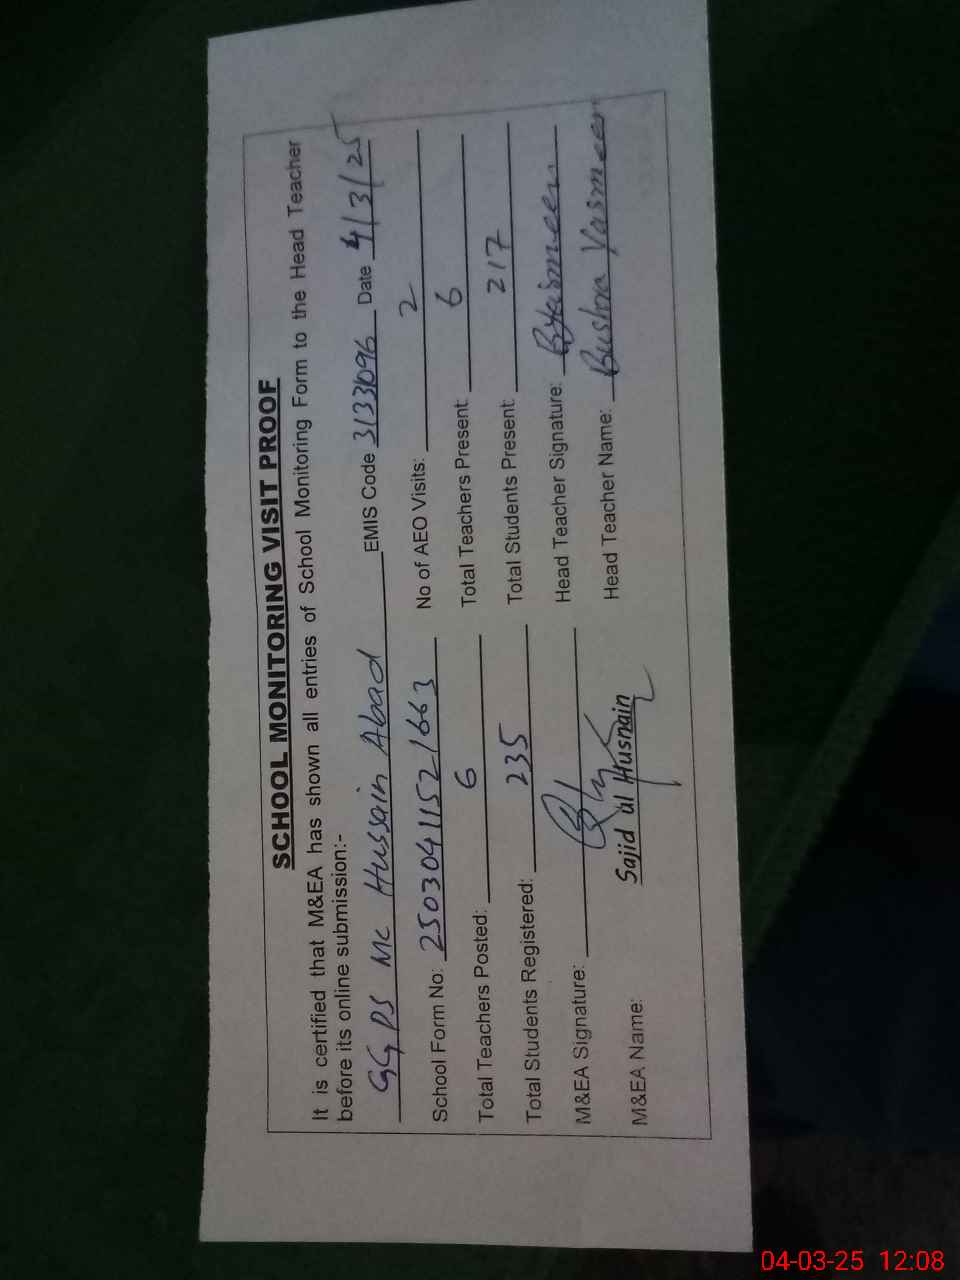 SCHOOL MONITORING VISIT PROOF
It is certified that M&EA has shown all entries of School Monitoring Form to the Head Teacher
before its online submission:-
GGPS MC Hussain Abad EMIS Code 3133096 Date 4/3/25
School Form No: 25030411521663 No of AEO Visits: 2
Total Teachers Posted: 6 Total Teachers Present: 6
Total Students Registered: 235 Total Students Present: 217
M&EA Signature: Head Teacher Signature: BYasmeen
M&EA Name: Sajid ul Husnain Head Teacher Name: Bushra Yasmeen
04-03-25 12:08